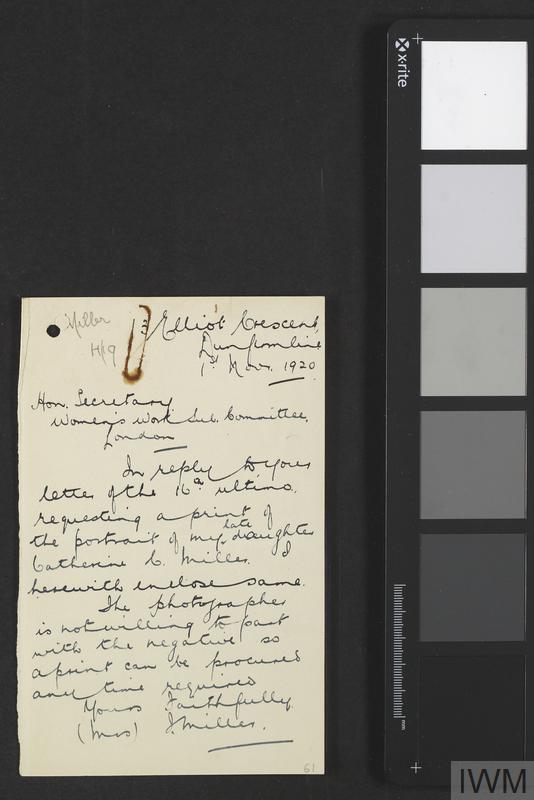 Miller
H/19
3 Elliot Crescent,
Dunfermline
1st Novr. 1920
Hon. Secretary
Women's Work Sub. Committee,
London
In reply to yours
letter of the 16th ultimo.
requesting a print of
the portrait of my late daughter
Catherine C. Miller. I
herewith enclose same.
The photographer
is not willing to part
with the negative so
a print can be procured
any time required
Yours Faithfully.
(Mrs) J. Miller.
51
x-rite
mm
IWM